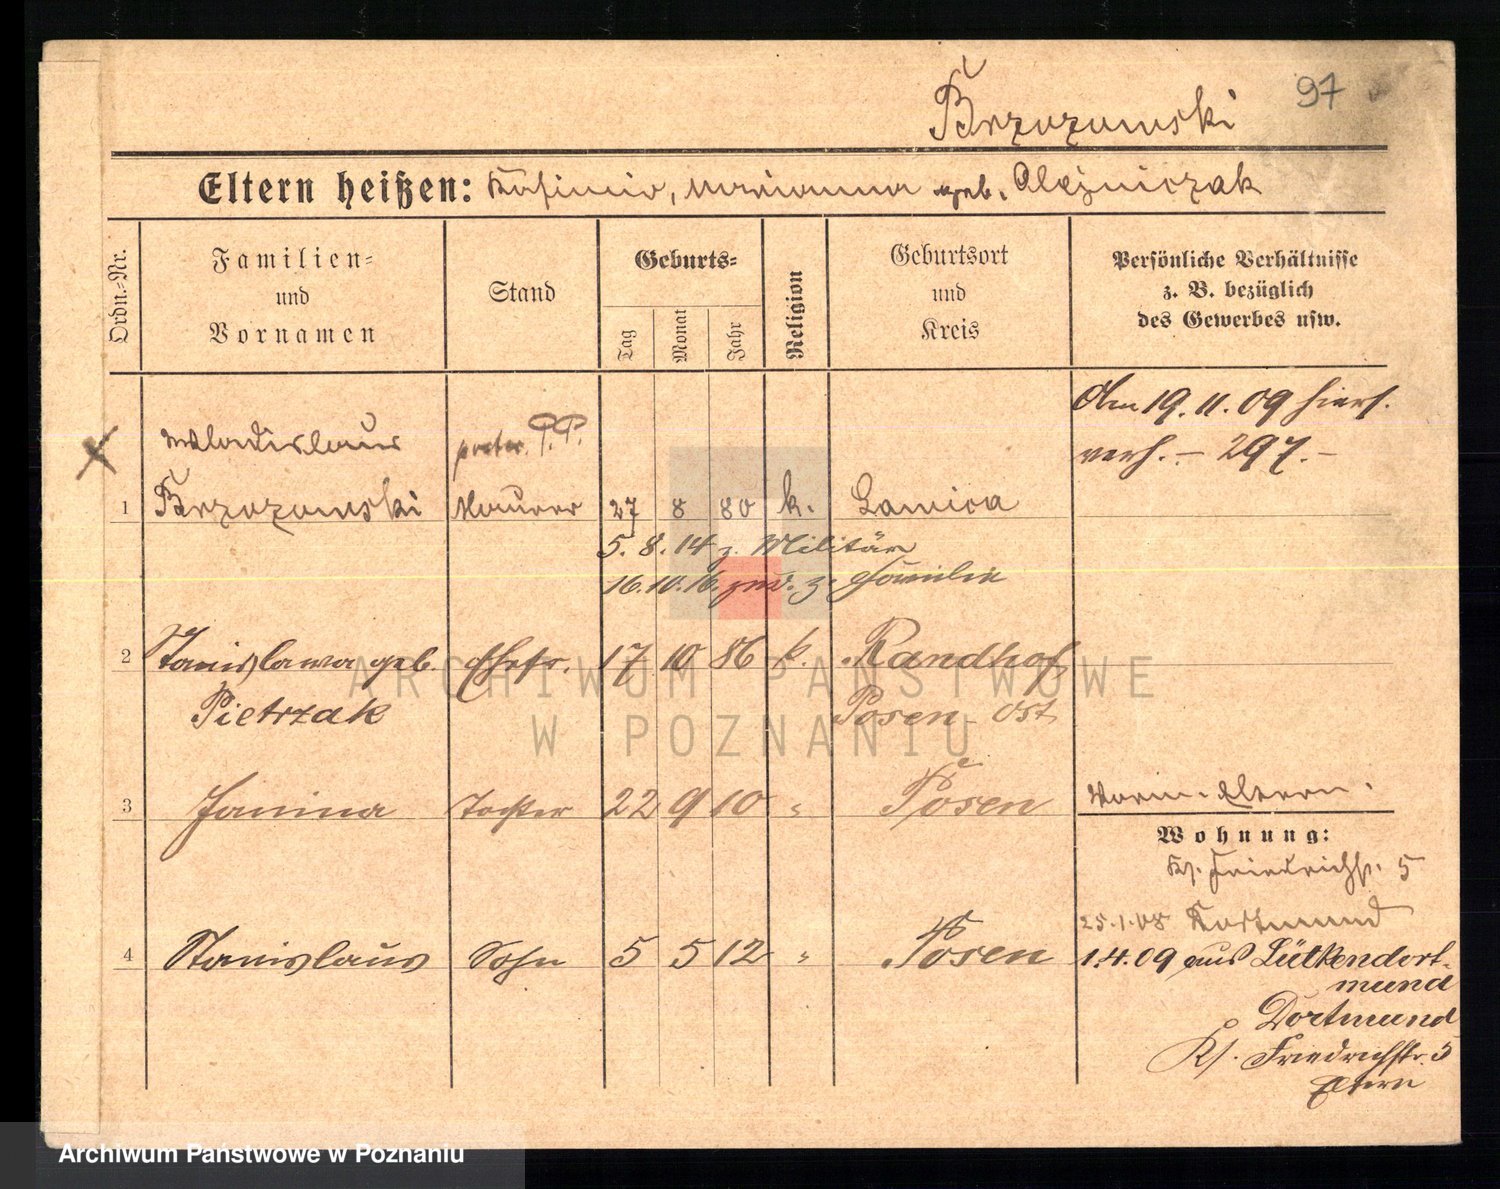 97
Brzozowski
Eltern heißen: Kasimir, Marianna geb. Olejniczak
Ordn.-Nr.
Familien- und Vornamen
Stand
Geburts-
Tag
Monat
Jahr
Religion
Geburtsort und Kreis
Persönliche Verhältnisse
z. B. bezüglich
des Gewerbes usw.
Am 19. 11. 09 hiers.
verh. - 297. -
Wladislaus
1 Brzozowski Maurer 27 8 80 k. Lawica
5. 8. 14 z. Militär
16. 10. 16. zur. z. Familie
2 Stanislawa geb. Ehefr. 17 10 86 k. Randhof,
Pietrzak Posen-Ost
3 Janina Tochter 22 9 10 " Posen
Eltern.
Wohnung:
Kl. Friedrichstr. 5
25.1.08 Dortmund
4 Stanislaus Sohn 5 5 12 " Posen
1.4.09 aus Lütkendort-
mund
Dortmund
Kl. Friedrichstr. 5
Eltern
ARCHIWUM PAŃSTWOWE
W POZNANIU
Archiwum Państwowe w Poznaniu